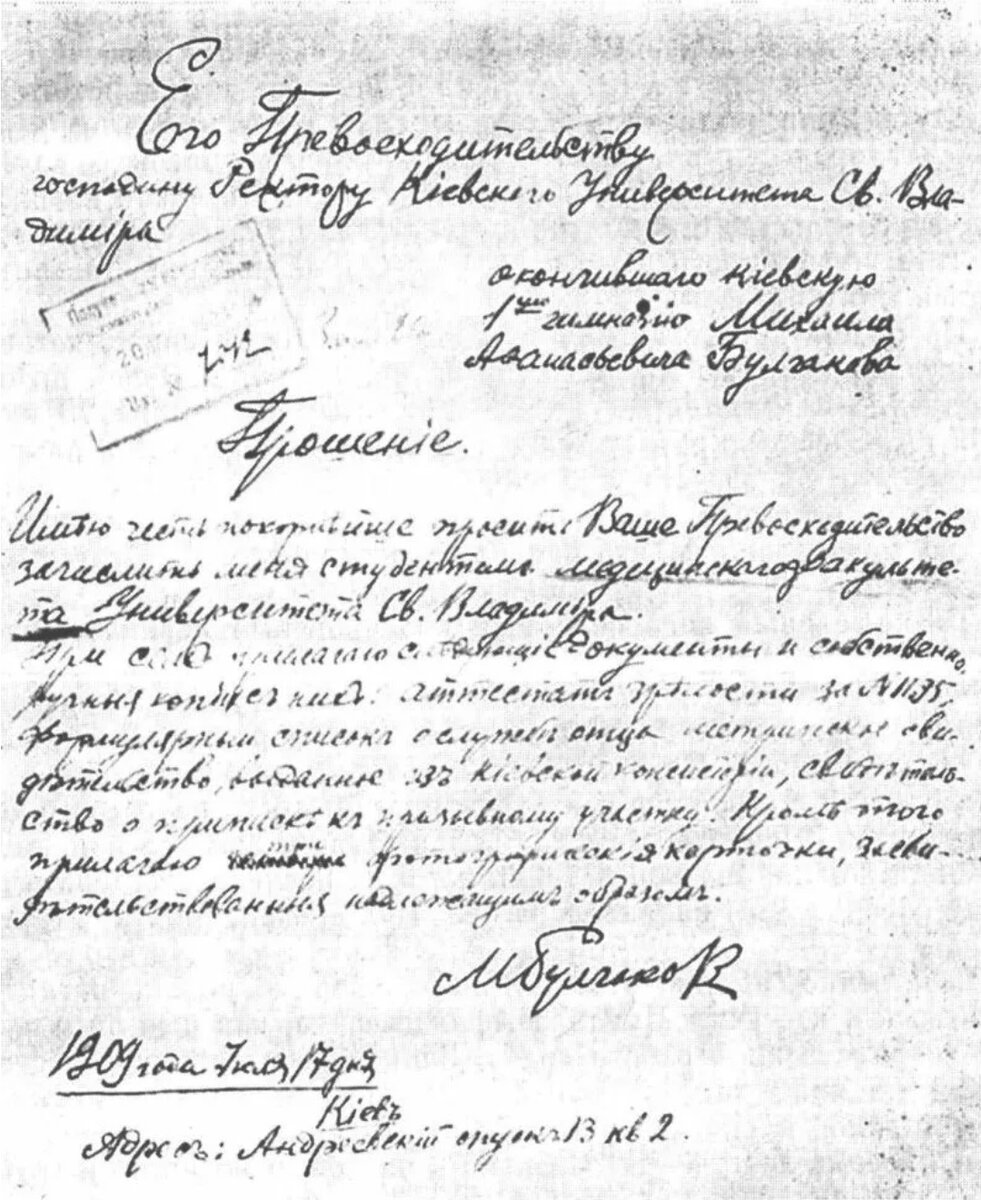 Его Превосходительству
господину Ректору Кіевского Университета Св. Вла-
диміра
окончившаго Кіевскую
1ую гимназію Михаила
Афанасьевича Булгакова
Прошеніе.
Имѣю честь покорнѣйше просить Ваше Превосходительство
зачислить меня студентомъ медицинскаго факульте-
та Университета Св. Владиміра.
При семъ прилагаю слѣдующіе документы и собственно-
ручныя копіи съ нихъ: аттестатъ зрѣлости за № 1135,
формулярный списокъ о службѣ отца, метрическое сви-
дѣтельство, выданное изъ Кіевской консисторіи, свидѣтель-
ство о припискѣ къ призывному участку. Кромѣ того
прилагаю три фотографическія карточки, засви-
дѣтельствованныя надлежащимъ образомъ.
МБулгаковъ
1909 года Іюля 17 дня
Кіевъ
Адресъ: Андреевскій спускъ 13 кв 2.